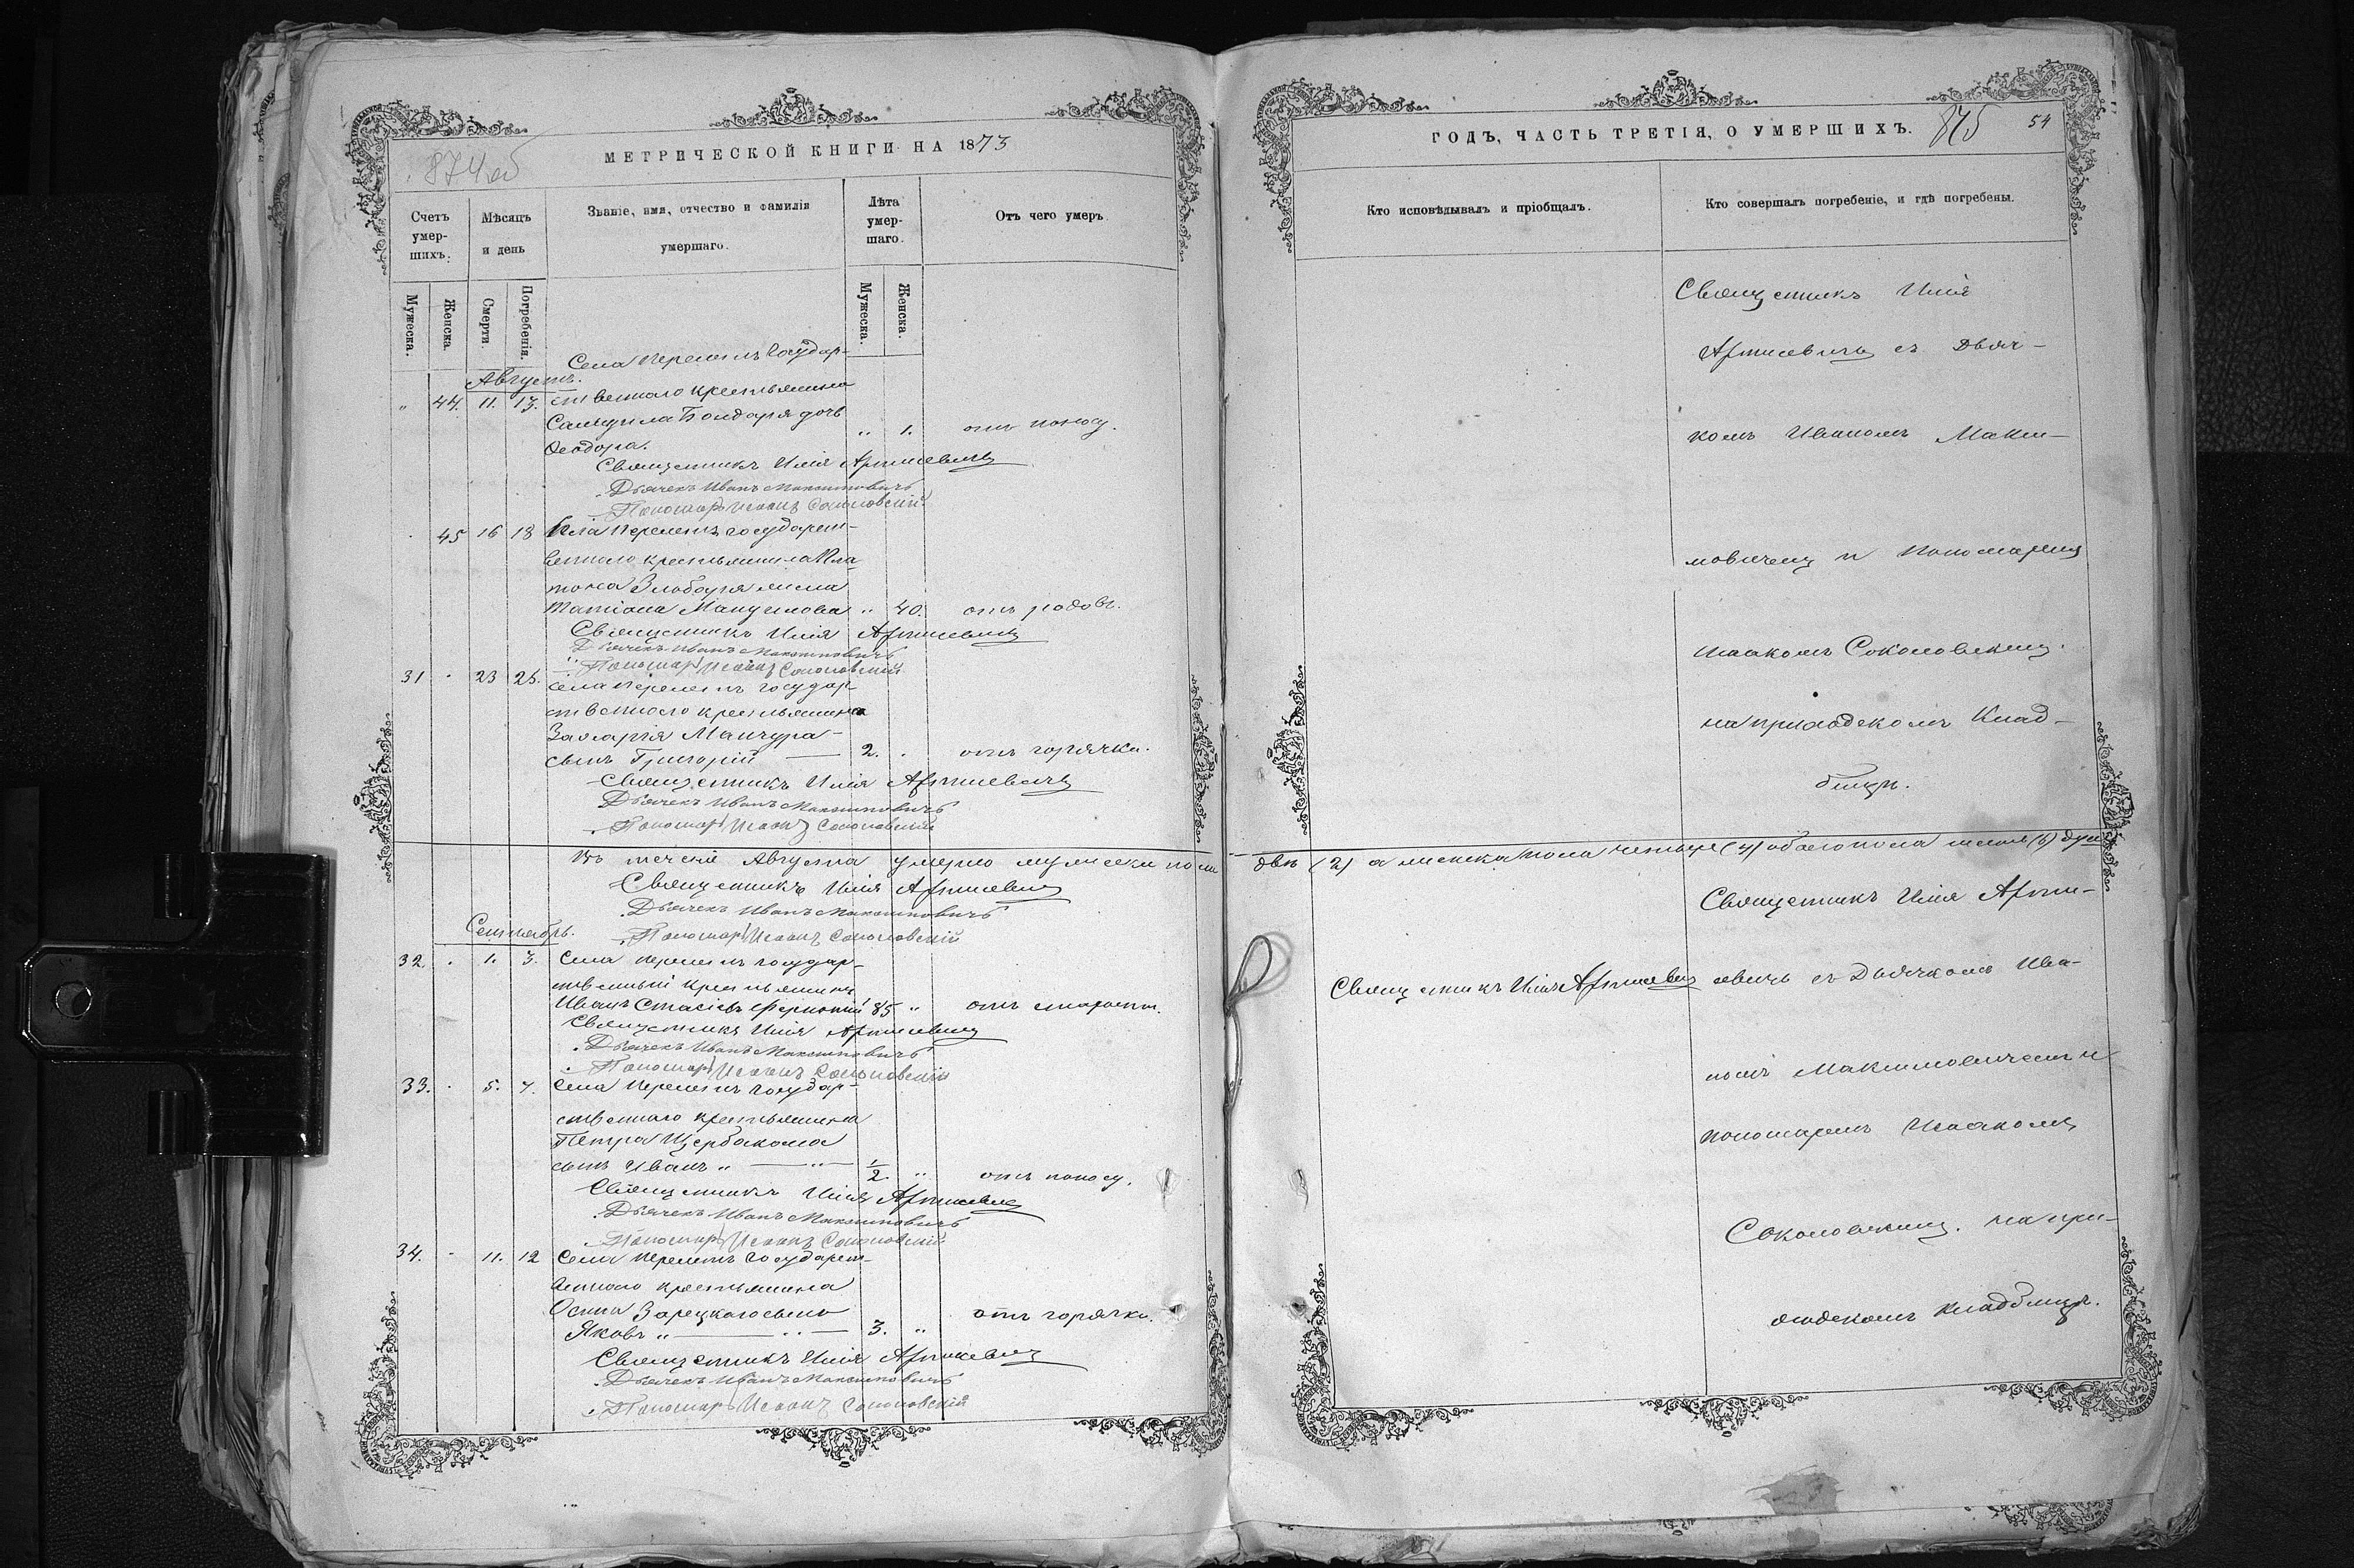 МЕТРИЧЕСКОЙ КНИГИ НА 1873
874 об
Счетъ умер-шихъ.
Мѣсяцъ и день
Званіе, имя, отчество и фамилія умершаго.
Лѣта умер-шаго.
Отъ чего умеръ
Мужеска.
Женска.
Смерти.
Погребенія.
Мужеска.
Женска.
Августъ.
Села государ-
" 44. 11. 13. ственнаго крестьянина
Бондаря дочь
Ѳеодора. " 1. отъ поносу.
Священникъ Илія
Дьячекъ Иванъ Максимовичъ
Пономарь Исаакъ Соколовскій
45 16 18 Села государст-
веннаго крестьянина Пла-
тона жена
Татіана " 40. отъ родовъ.
Священникъ Илія
Дьячекъ Иванъ Максимовичъ
Пономарь Исаакъ Соколовскій
31 23 25. Села государ-
ственнаго крестьянина
Захарія
сынъ Григорій — 2. отъ горячки.
Священникъ Илія
Дьячекъ Иванъ Максимовичъ
Пономарь Исаакъ Соколовскій
Въ теченіе Августа умерло мужеска пола
Священникъ Илія
Дьячекъ Иванъ Максимовичъ
Пономарь Исаакъ Соколовскій
Сентябрь.
32. 1. 3. Села государ-
ственный крестьянинъ
Иванъ 85 " отъ старости.
Священникъ Илія
Дьячекъ Иванъ Максимовичъ
Пономарь Исаакъ Соколовскій
33. 5. 7. Села государ-
ственнаго крестьянина
Петра
сынъ Иванъ " — " — 1/2. " отъ поносу.
Священникъ Илія
Дьячекъ Иванъ Максимовичъ
Пономарь Исаакъ Соколовскій
34. 11. 12 Села государст-
веннаго крестьянина
Осипа Зарецкаго сынъ
Яковъ " — " — 3. " отъ горячки.
Священникъ Илія
Дьячекъ Иванъ Максимовичъ
Пономарь Исаакъ Соколовскій
ГОДЪ, ЧАСТЬ ТРЕТІЯ, О УМЕРШИХЪ.
875
54
Кто исповѣдывалъ и пріобщалъ.
Кто совершалъ погребеніе, и гдѣ погребены.
Священникъ Илія
съ Дьяч-
комъ Иваномъ Макси-
мовичемъ и Пономаремъ
Исаакомъ Соколовскимъ.
на приходскомъ Клад-
бищѣ.
двѣ (2) а женска пола четыре (4) обоего пола шесть (6) душъ
Священникъ Илія
Священникъ Илія
съ Дьячкомъ Ива-
номъ Максимовичемъ и
пономаремъ Исаакомъ
Соколовскимъ. на при-
ходскомъ кладбищѣ.